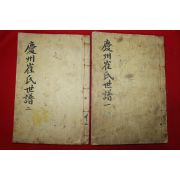 慶州崔氏世譜一
慶州崔氏世譜二